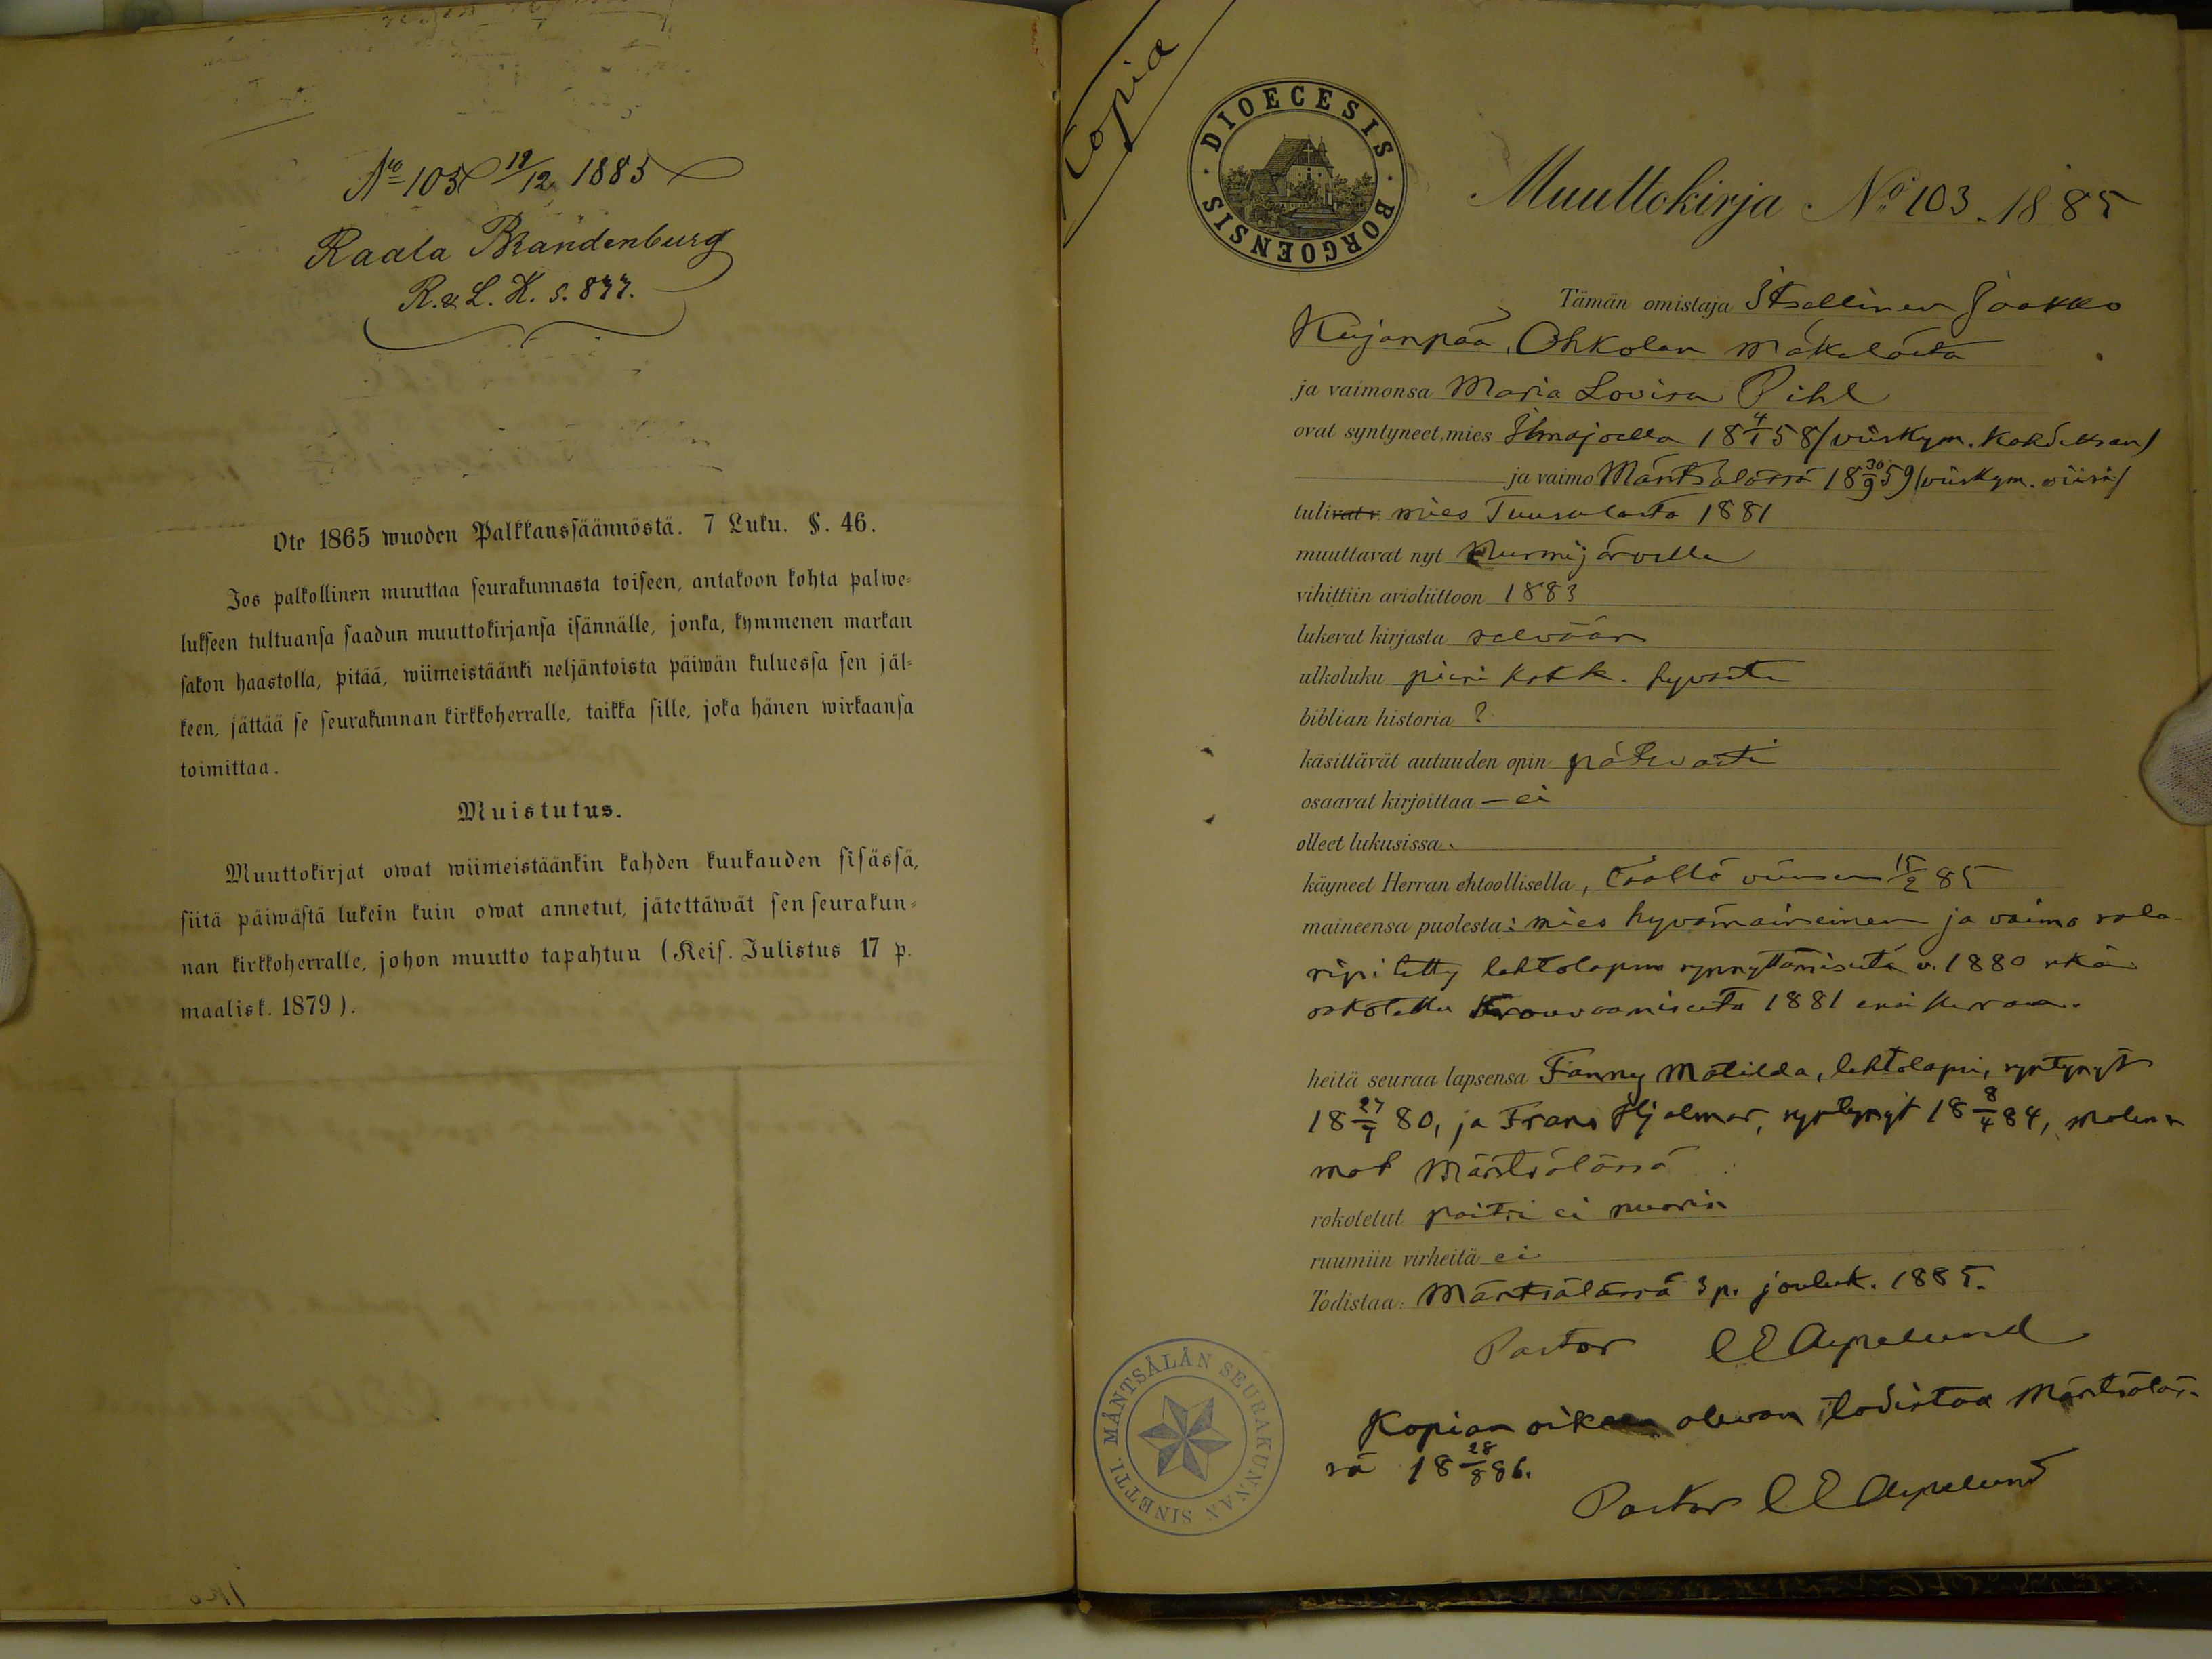 No 103 19/12 1885
Raala Brandenburg
R. & L. K. s. 877.
Ote 1865 wuoden Palkkanssäännöstä. 7 Luku. §. 46.
Jos palkollinen muuttaa seurakunnasta toiseen, antakoon kohta palwe-
lukseen tultuansa saadun muuttokirjansa isännälle, jonka, kymmenen markan
sakon haastolla, pitää, wiimeistäänki neljäntoista päiwän kuluessa sen jäl-
keen, jättää se seurakunnan kirkkoherralle, taikka sille, joka hänen wirkaansa
toimittaa.
Muistutus.
Muuttokirjat owat wiimeistäänkin kahden kuukauden sisässä,
siitä päiwästä lukein kuin owat annetut, jätettäwät sen seurakun-
nan kirkkoherralle, johon muutto tapahtuu (Keis. Julistus 17 p.
maalisk. 1879).
Copia
DIOECESIS BORGOENSIS
Muuttokirja No 103. 1885
Tämän omistaja Itsellinen Jaakko
Kujanpää, Ohkolan Mäkelästä
ja vaimonsa Maria Lovisa Pihl
ovat syntyneet, mies Ilmajoella 18 4/1 58 /viiskym. kahdeksan/
ja vaimo Mäntsälässä 18 30/9 59 /viiskym.
tulivat v. mies Tuusulasta 1881
muuttavat nyt Nurmijärvelle
vihittiin avioliittoon 1883
lukevat kirjasta selvään
ulkoluku pieni katk. hyvästi
biblian historia ?
käsittävät autuuden opin pätevästi
osaavat kirjoittaa – ei
olleet lukusissa
käyneet Herran ehtoollisella, täällä viimen 15/2 85
maineensa puolesta: mies hyvämaineinen ja vaimo sala-
ripitetty lehtolapsen synnyttämisestä v. 1880 sekä
sakotettu krouvaamisesta 1881 ensi kerran.
heitä seuraa lapsensa Fanny Matilda, lehtolapsi, syntynyt
18 27/7 80, ja Frans Hjalmar, syntynyt 18 8/4 84, molem
mat Mäntsälässä
rokotetut paitsi ei nuorin
ruumiin virheitä ei
Todistaa: Mäntsälässä 3 p. jouluk. 1885.
Pastor C E Aspelund
Kopian oikean olevan todistaa Mäntsäläs-
sä 18 28/8 86.
Pastor C E Aspelund
MÄNTSÄLÄN SEURAKUNNAN SINETTI